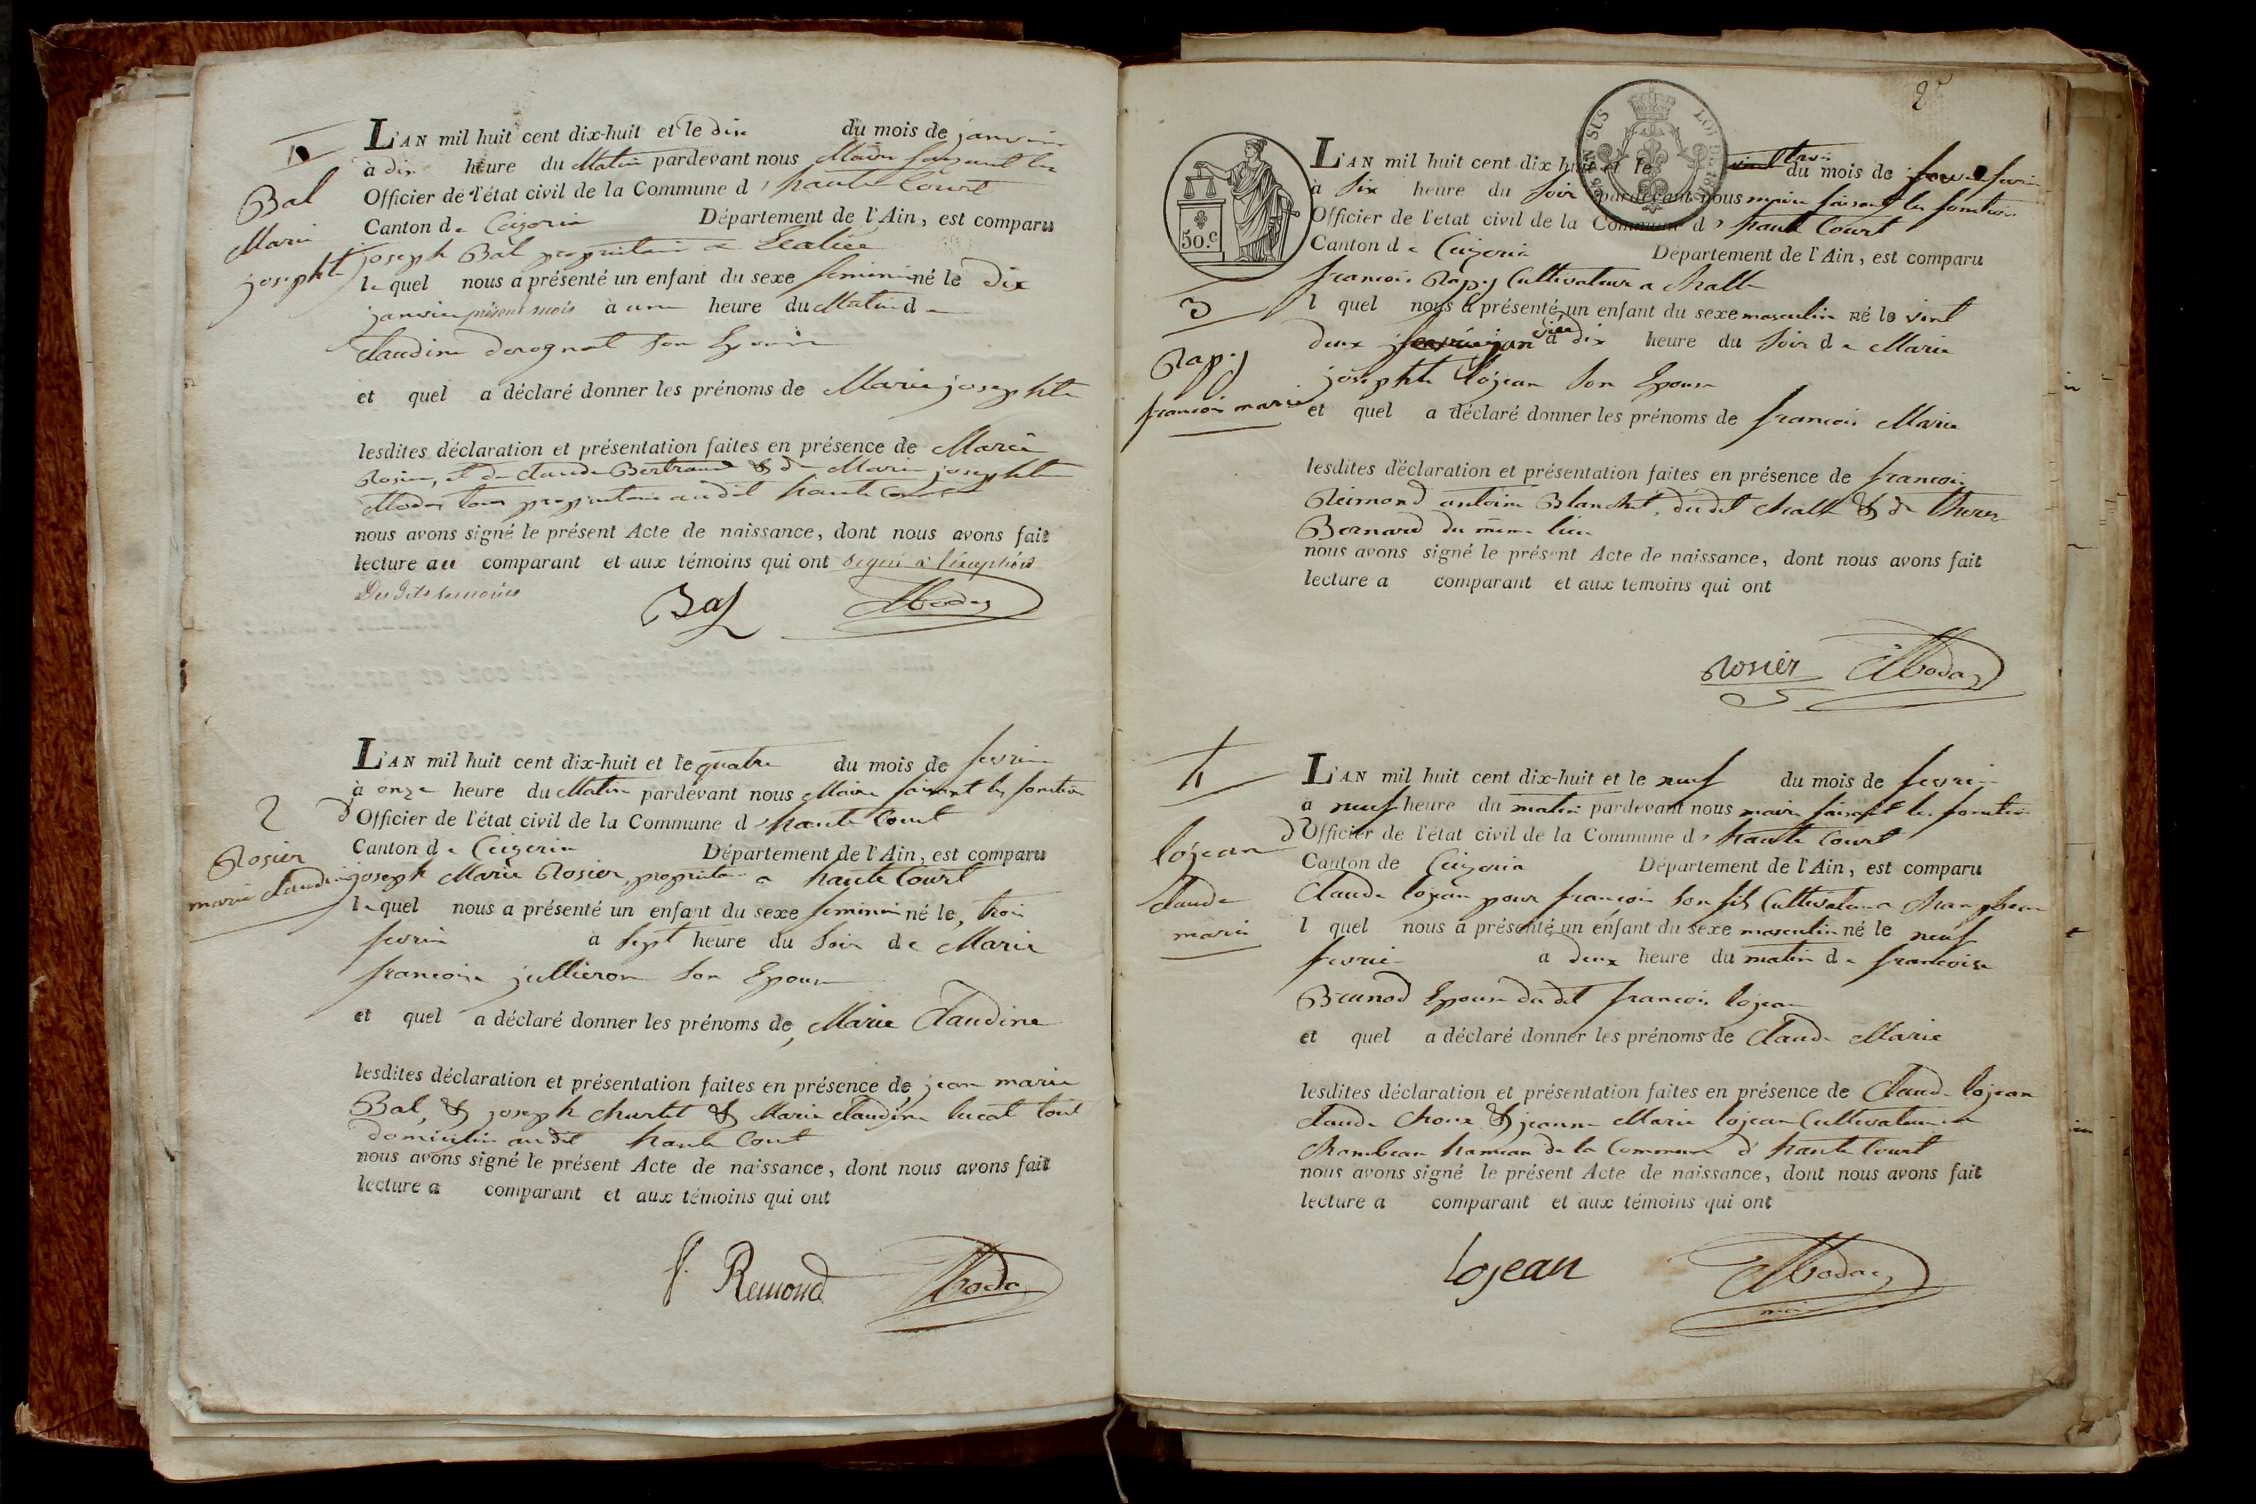 1
Bal
Marie
josephte
L'AN mil huit cent dix-huit et le dix du mois de janvier
à dix heure du Matin pardevant nous Maire faisant les
Officier de l'état civil de la Commune d'hautecourt
Canton de Ceizeria Département de l'Ain, est comparu
joseph Bal proprietaire a
le quel nous a présenté un enfant du sexe feminin né le dix
janvier présent mois à une heure du Matin de
Claudine derognat son Epouse
et quel a déclaré donner les prénoms de Marie josephte
lesdites déclaration et présentation faites en présence de Marie
Rosier, et de Claude Bertrand & de Marie josephte
Modas tous propriétaires audit hautecourt
nous avons signé le présent Acte de naissance, dont nous avons fait
lecture au comparant et aux témoins qui ont signé à l'exception
Des dits temoins
Bal Modas
2
Rosier
marie Claudine
L'AN mil huit cent dix-huit et le quatre du mois de fevrier
à onze heure du Matin pardevant nous Maire faisant les fonction
d'Officier de l'état civil de la Commune d'haute Court
Canton de Ceizeria Département de l'Ain, est comparu
joseph Marie Rosier, propriétaire a haute Court
le quel nous a présenté un enfant du sexe feminin né le, trois
fevrier a sept heure du soir de Marie
francoise jullieron son Epouse
et quel a déclaré donner les prénoms de, Marie Claudine
lesdites déclaration et présentation faites en présence de jean marie
Bal, & joseph churlet & Marie Claudine lucat tous
domicilie audit haute Court
nous avons signé le présent Acte de naissance, dont nous avons fait
lecture a comparant et aux témoins qui ont
f. Remond Modas
2
50.c
3
Rapy
francois marie
L'AN mil huit cent dix huit et le vint trois du mois de fevrier
à six heure du soir pardevant nous maire faisant les fonctions
Officier de l'etat civil de la Commune d'haute Court
Canton de Ceizeria Département de l'Ain, est comparu
francois Rapy Cultivateur a Challe
l quel nous a présenté un enfant du sexe masculin né le vint
deux janvier a dix heure du soir de Marie
josephte lojean son Epouse
et quel a déclaré donner les prénoms de francois Marie
lesdites déclaration et présentation faites en présence de francois
Reimond antoine Blanchet, dudit challe & de therese
Bernard du même lieu
nous avons signé le présent Acte de naissance, dont nous avons fait
lecture a comparant et aux témoins qui ont
Rosier Modas
4
lojean
Claude
marie
L'AN mil huit cent dix-huit et le neuf du mois de fevrier
à neuf heure du matin pardevant nous maire faisant les fonction
d'Officier de l'état civil de la Commune d'haute Court
Canton de Ceizeria Département de l'Ain, est comparu
Claude lojean pour francois son fils Cultivateur a Chambeau
l quel nous a présenté un enfant du sexe masculin né le neuf
fevrier a deux heure du matin de francoise
Brunod Epouse dudit francois lojean
et quel a déclaré donner les prénoms de Claude Marie
lesdites déclaration et présentation faites en présence de Claude lojean
Claude Chone & jeanne Marie lojean Cultivateur a
Chambeau hameau de la Commune d'haute Court
nous avons signé le présent Acte de naissance, dont nous avons fait
lecture a comparant et aux témoins qui ont
lojean Modas